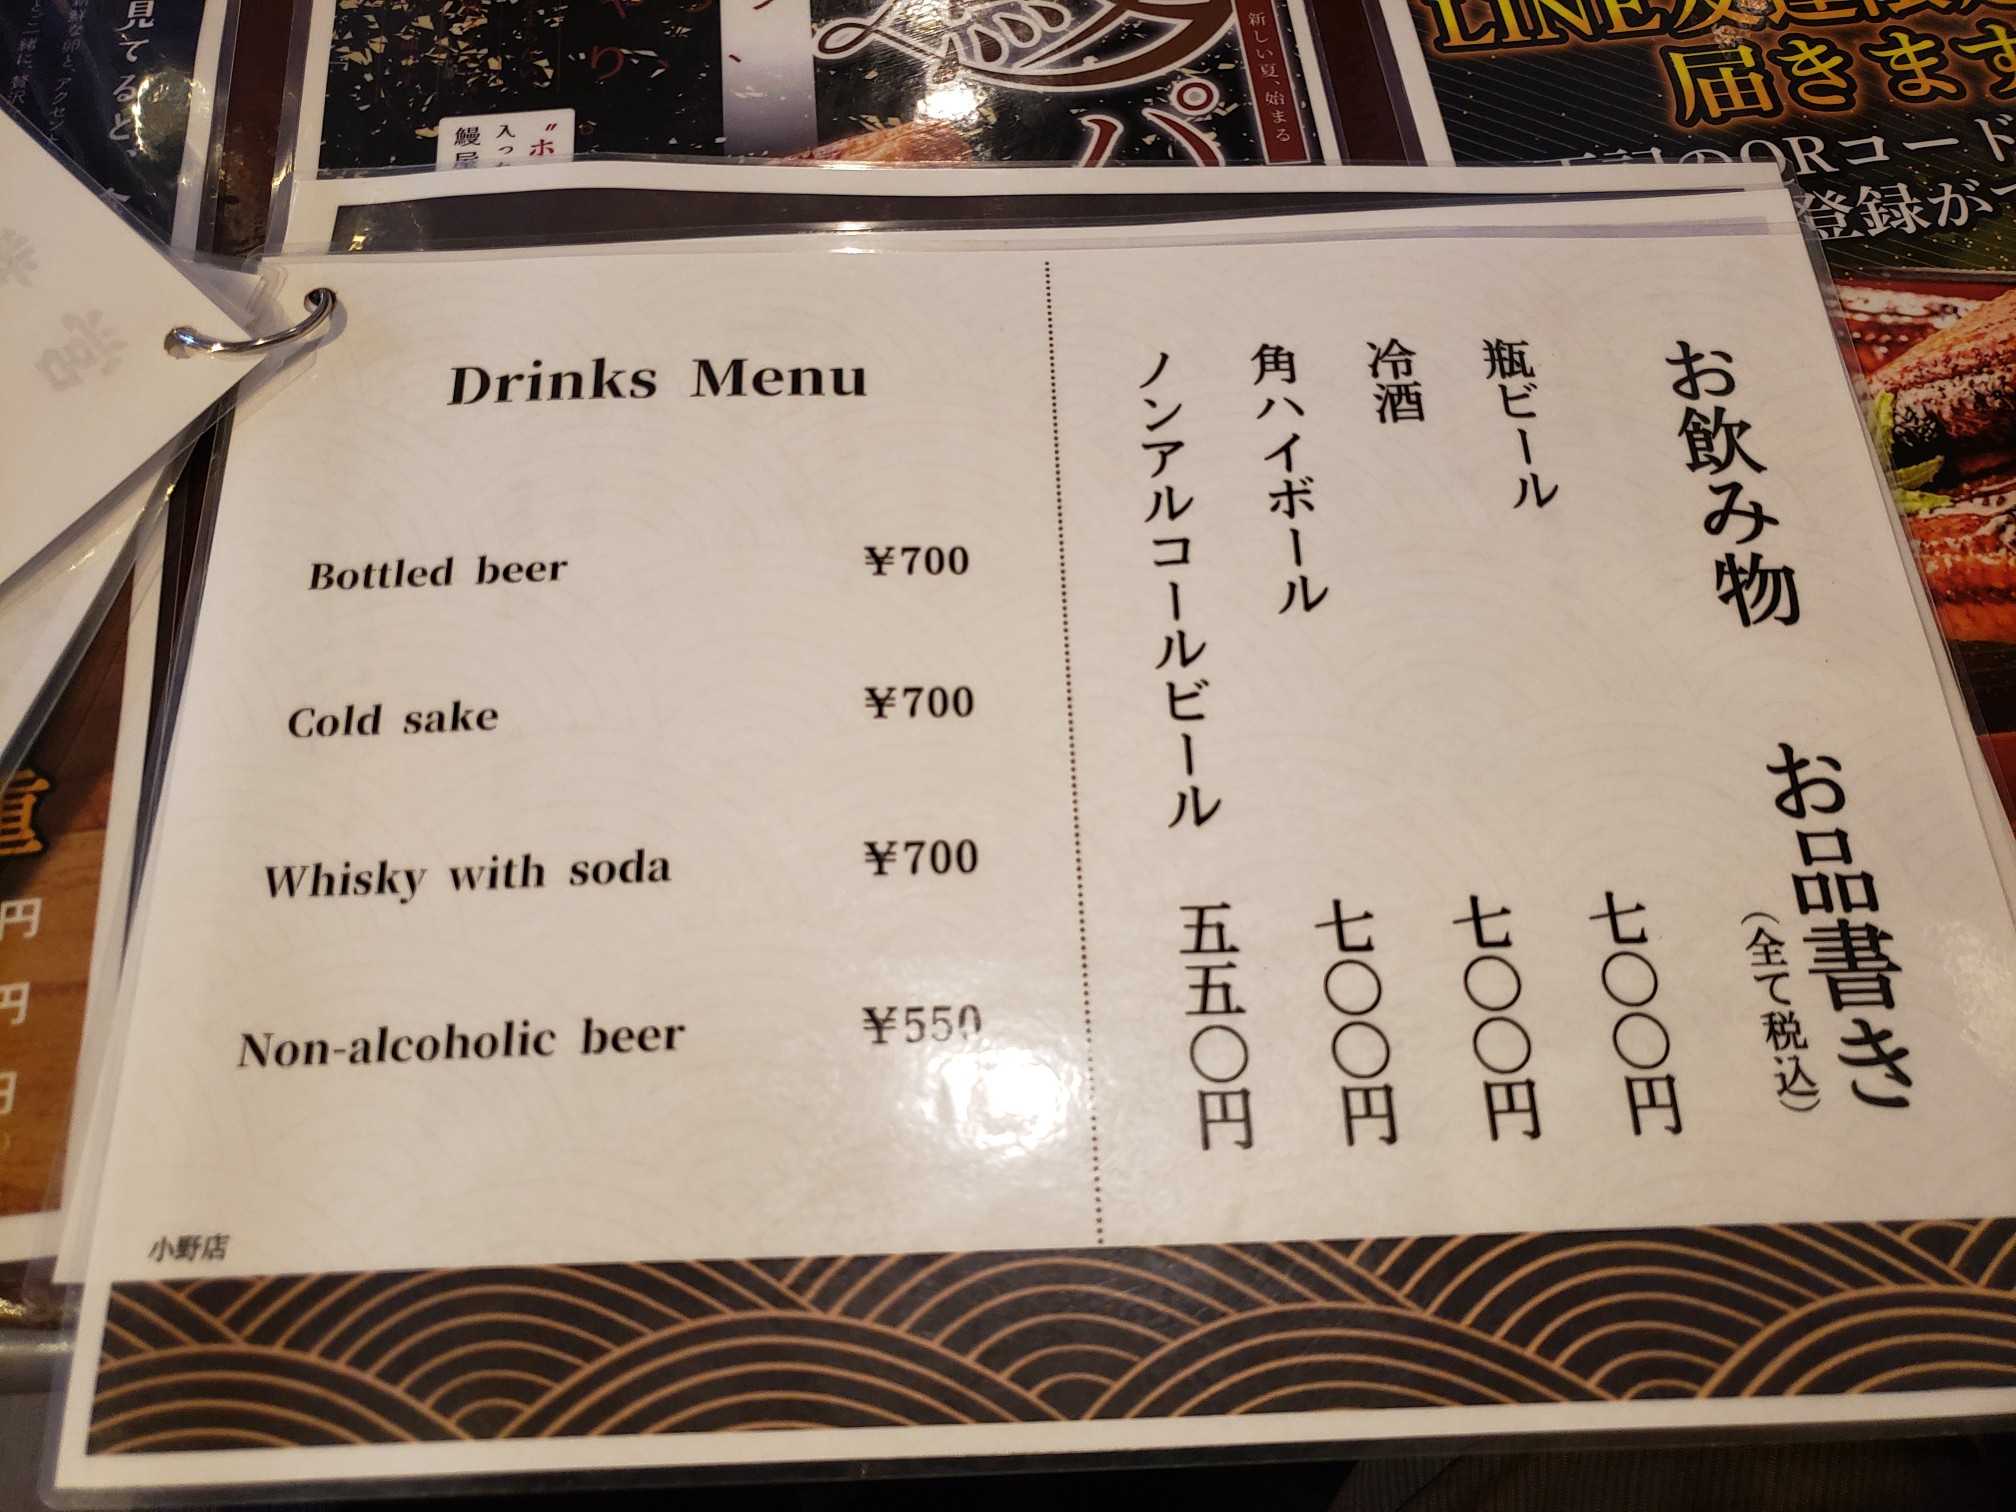 見てると、
鰻屋
入っ
〝ホ
新しい夏、始まる
パ
LINE
届きます
QRコード
登録が
Drinks Menu
Bottled beer ¥700
Cold sake ¥700
Whisky with soda ¥700
Non-alcoholic beer ¥550
小野店
お飲み物 お品書き
(全て税込)
瓶ビール 七〇〇円
冷酒 七〇〇円
角ハイボール 七〇〇円
ノンアルコールビール 五五〇円
重
円
円
円